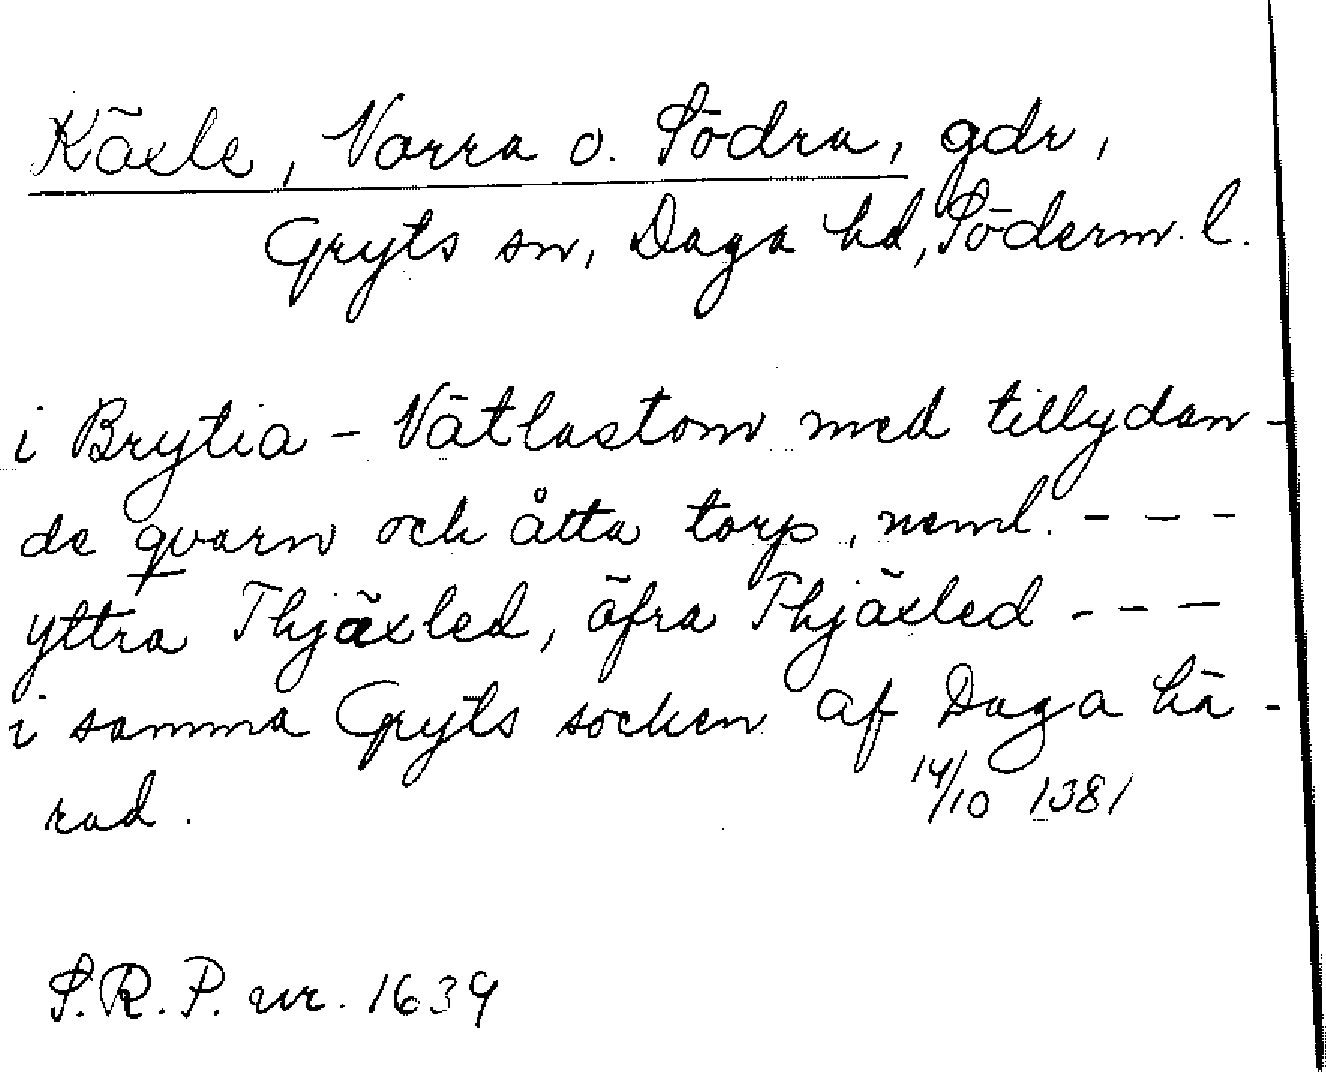 Käxle, Norra o. Södra, gdr,
Gryts sn, Daga hd, Söderm. l.
i Brytia - Vätlastom med tillydan-
de qvarn och åtta torp, neml. - - -
yttra Thjäxled, öfra Thjäxled - - -
i samma Gryts socken af Daga hä-
rad.
14/10 1381
S.R.P. nr. 1639